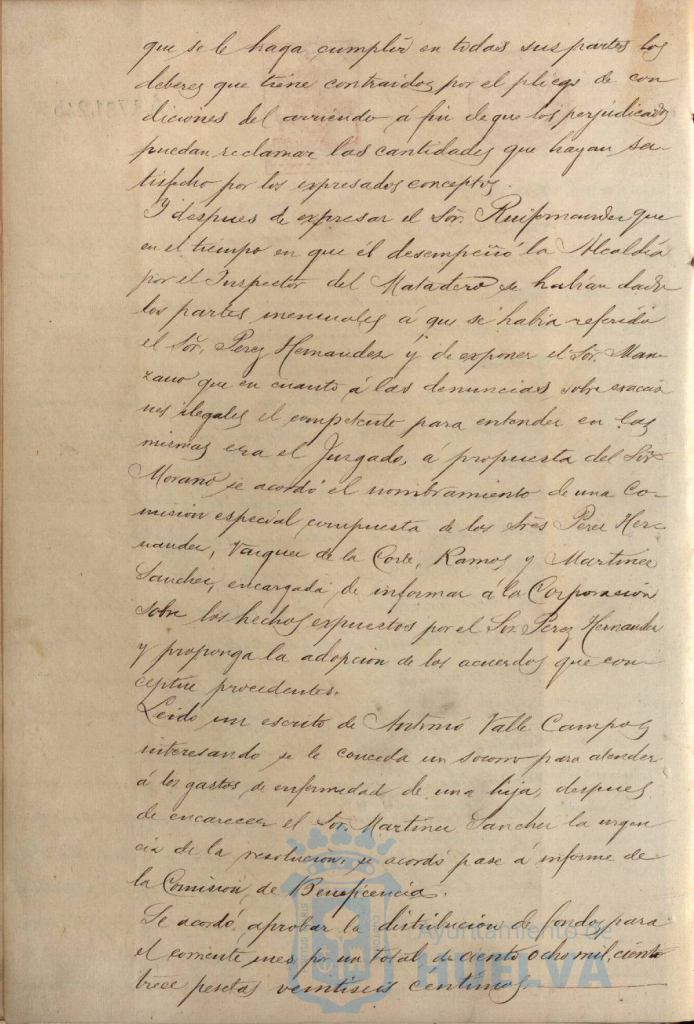 que se le haga cumplir en todas sus partes los
deberes que tiene contraidos por el pliego de con
diciones del arriendo á fin de que los perjudicados
puedan reclamar las cantidades que hayan sa-
tisfecho por los expresados conceptos.
Y despues de expresar el Sor. Ruifernandez que
en el tiempo en que él desempeñó la Alcaldía
por el Inspector del Matadero se habian dado
los partes mensuales á que se habia referido
el Sor. Perez Hernandez y de exponer el Sor. Man-
zano que en cuanto á las denuncias sobre exaccio
nes ilegales el competente para entender en las
mismas era el Juzgado, á propuesta del Sor
Morano se acordó el nombramiento de una Co-
mision especial compuesta de los Sres Perez Her-
nandez, Vazquez de la Corte, Ramos y Martinez
Sanchez, encargada de informar á la Corporacion
sobre los hechos expuestos por el Sor. Perez Hernandez
y proponga la adopcion de los acuerdos que con-
ceptue procedentes.
Leido un escrito de Antonio Valle Campos
interesando se le conceda un socorro para atender
á los gastos de enfermedad de una hija, despues
de encarecer el Sor. Martinez Sanchez la urgen
cia de la resolucion, se acordó pase á informe de
la Comision de Beneficencia.
Se acordó aprobar la distribucion de fondos para
el corriente mes por un total de ciento ocho mil, ciento
trece pesetas veintiseis centimos.
Ayuntamiento de
HUELVA